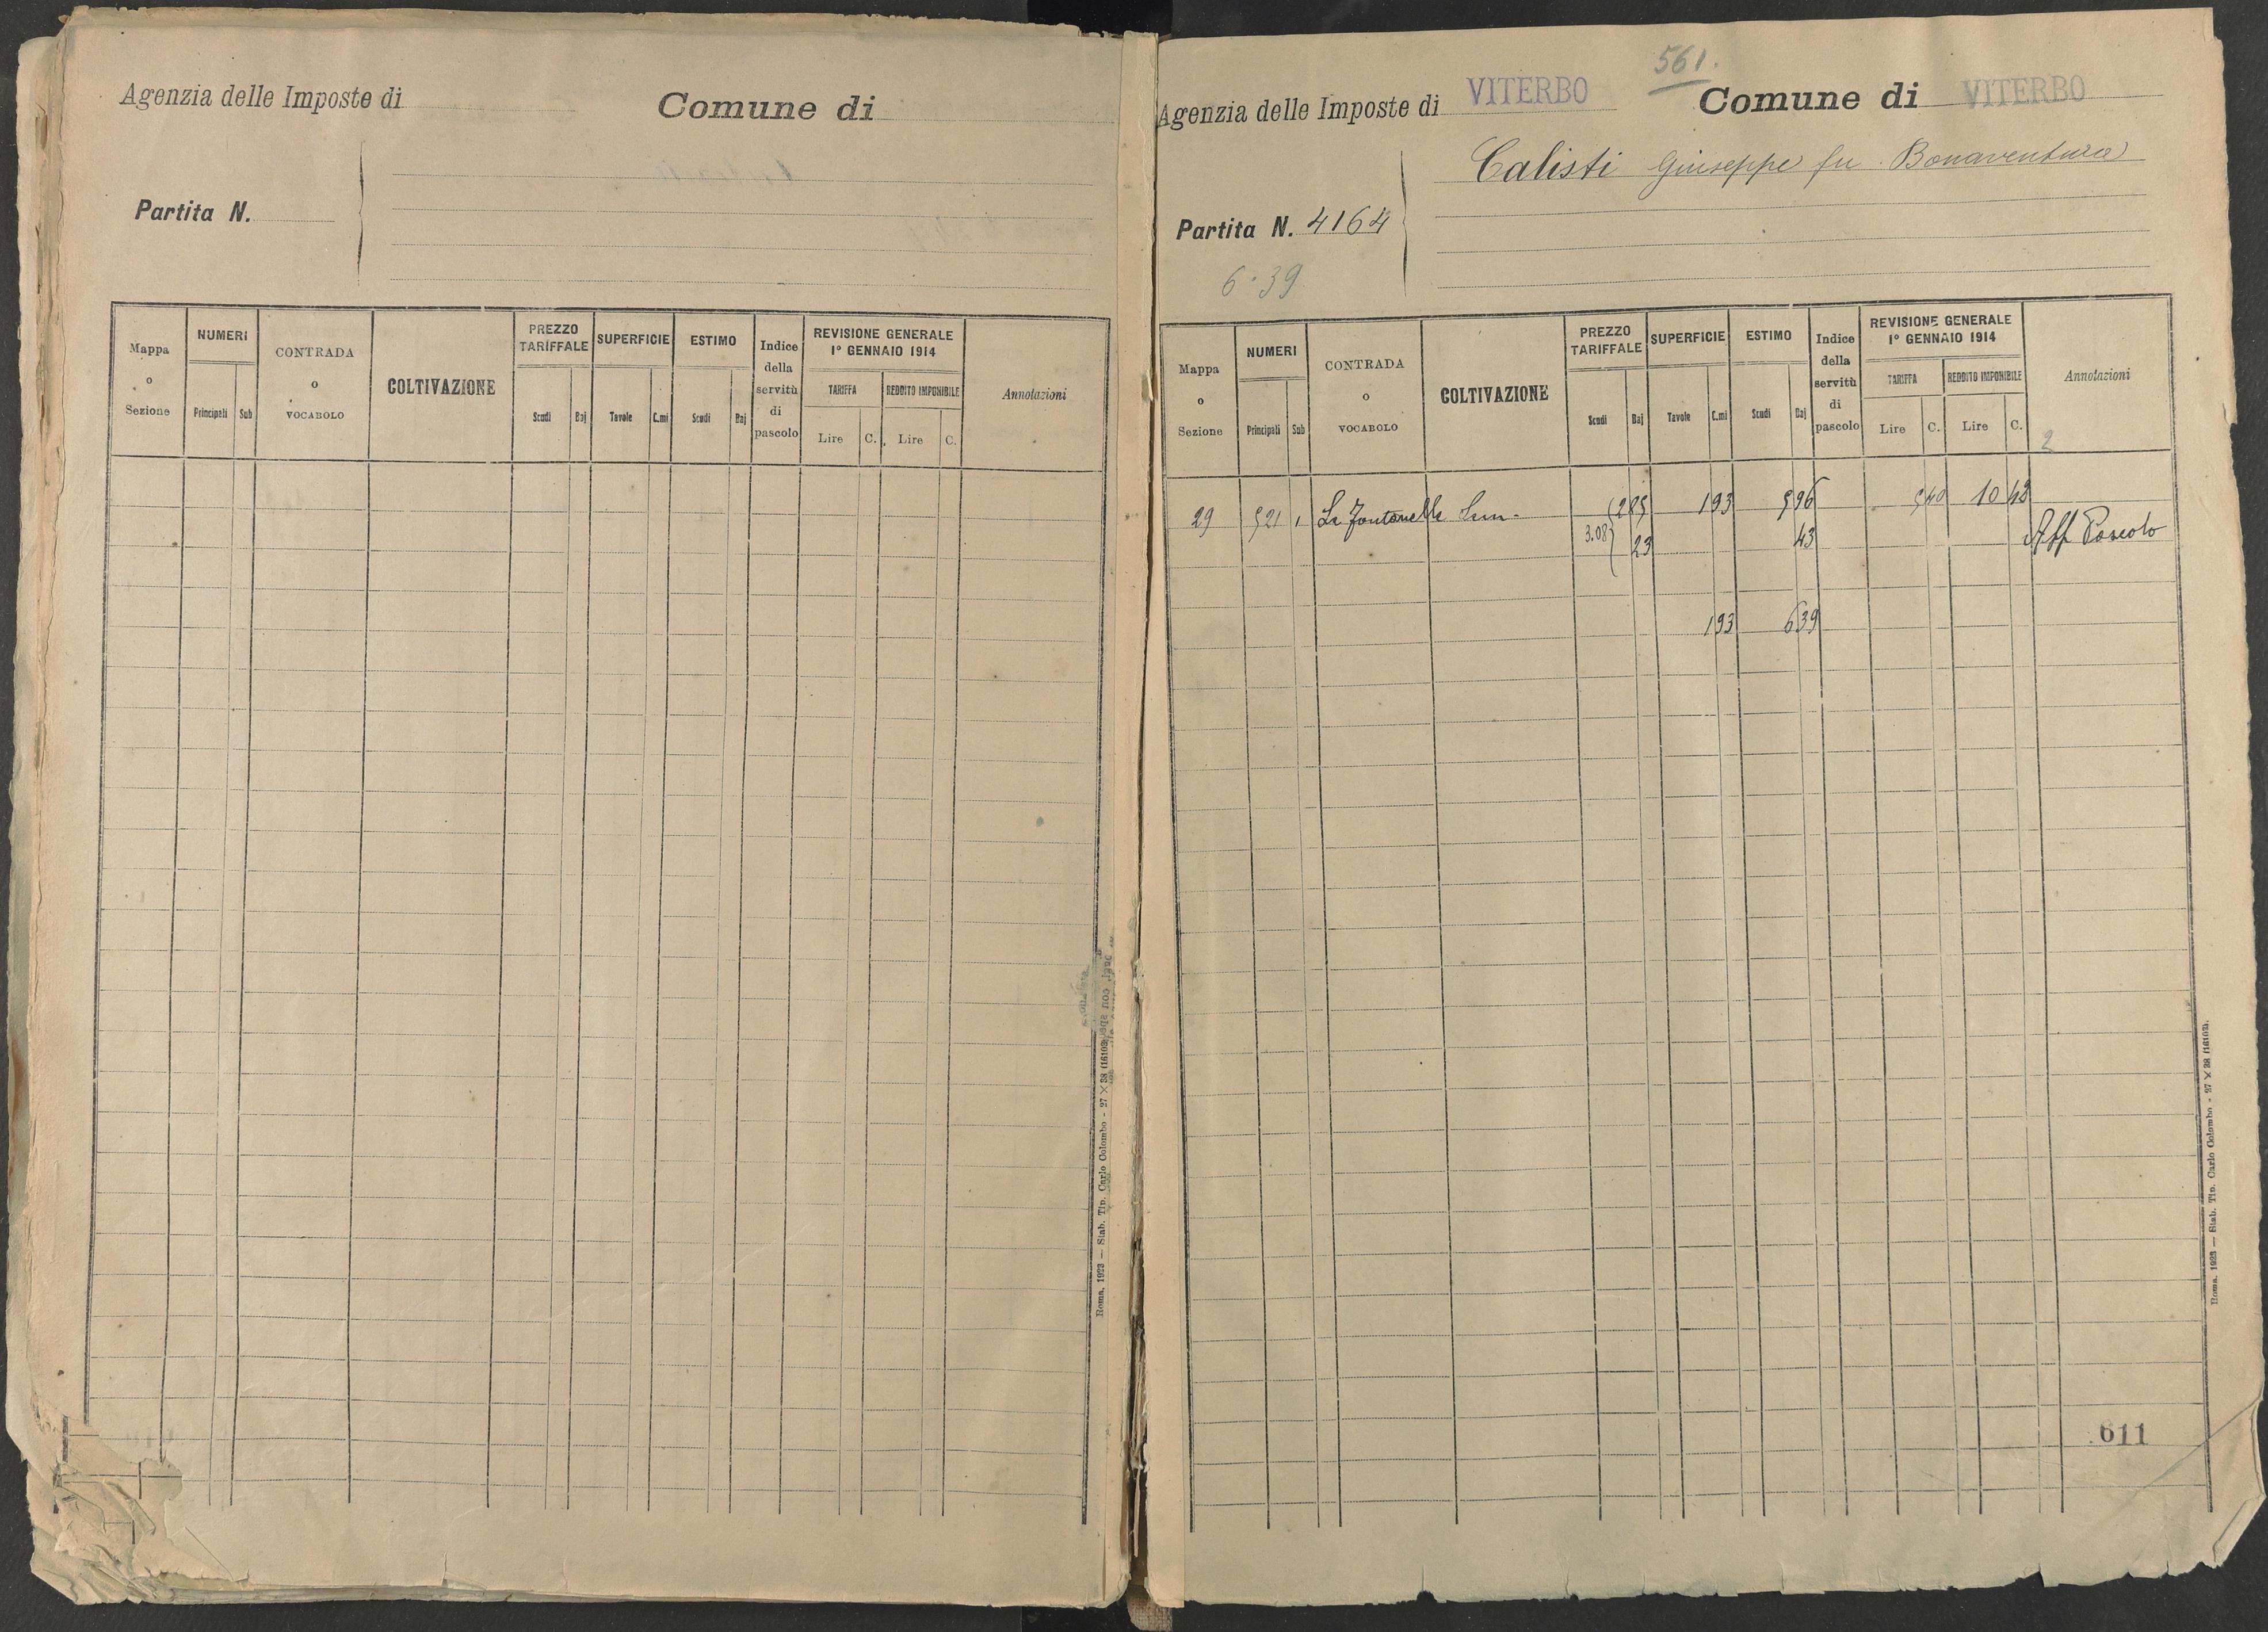 Agenzia delle Imposte di
Comune di
Partita N.
Mappa o Sezione
NUMERI
Principali Sub
CONTRADA o VOCABOLO
COLTIVAZIONE
PREZZO TARIFFALE
Scudi Baj
SUPERFICIE
Tavole C.mi
ESTIMO
Scudi Baj
Indice della servitù di pascolo
REVISIONE GENERALE
1° GENNAIO 1914
TARIFFA
Lire C.
REDDITO IMPONIBILE
Lire C.
Annotazioni
Roma, 1923 — Stab. Tip. Carlo Colombo - 27 × 38 (16103).
561.
Agenzia delle Imposte di VITERBO
Comune di VITERBO
Calisti Giuseppe fu Bonaventura
Partita N. 4164
6.39
Mappa o Sezione
NUMERI
Principali Sub
CONTRADA o VOCABOLO
COLTIVAZIONE
PREZZO TARIFFALE
Scudi Baj
SUPERFICIE
Tavole C.mi
ESTIMO
Scudi Baj
Indice della servitù di pascolo
REVISIONE GENERALE
1° GENNAIO 1914
TARIFFA
Lire C.
REDDITO IMPONIBILE
Lire C.
Annotazioni
2
29 521 1 La Fontanelle 285 1 93 5 96 5 40 10 42
3.08 23 43 Aff Pascolo
1 93 6 39
611
Roma, 1923 — Stab. Tip. Carlo Colombo - 27 × 38 (16103).